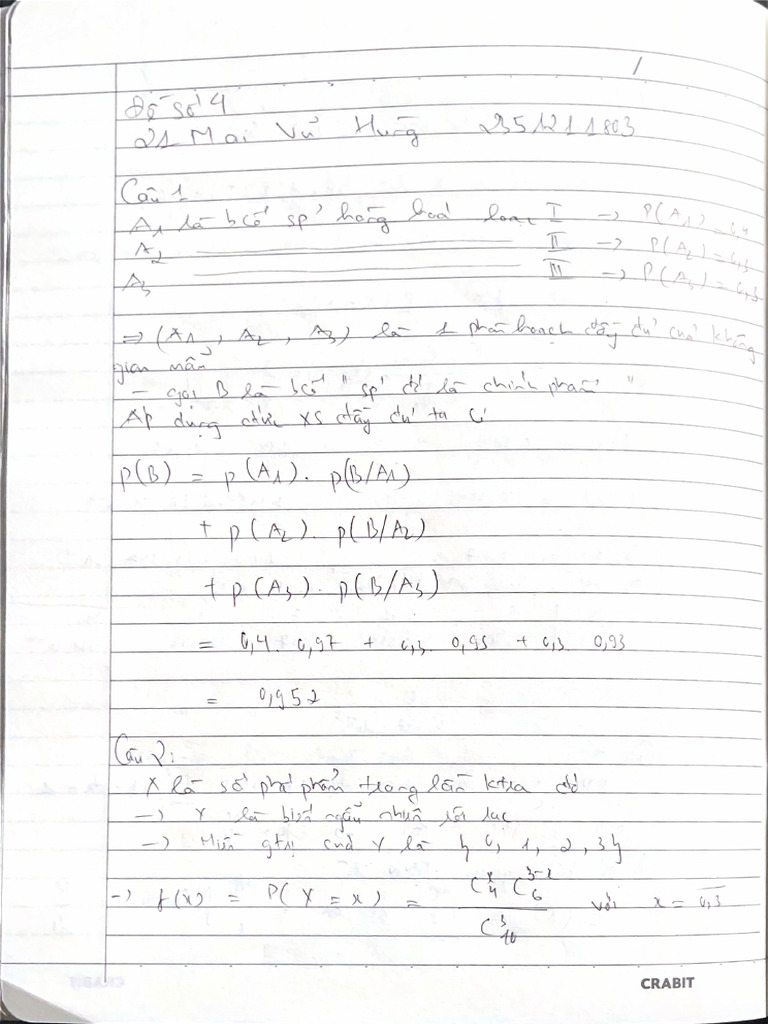 Đề số 4
21 Mai Vũ Hưng 235121 1803
Câu 1
A₁ là bcố sp' hàng hoá loại I → P(A₁) = 0,4
A₂ ——— II → P(A₂) = 0,3
A₃ ——— III → P(A₃) = 0,3
⇒ (A₁, A₂, A₃) là 1 phân hoạch đầy đủ của không
gian mẫu
- gọi B là bcố " sp' đó là chính phẩm "
Áp dụng cthức XS đầy đủ ta có
p(B) = p(A₁). p(B/A₁)
+ p(A₂). p(B/A₂)
+ p(A₃). p(B/A₃)
= 0,4. 0,97 + 0,3. 0,95 + 0,3. 0,93
= 0,952
Câu 2:
X là số phế phẩm trong lần ktra đó
→ X là biến ngẫu nhiên rời rạc
→ Miền gtrị của X là {0, 1, 2, 3}
→ f(x) = P(X = x) = C₄ˣ C₆³⁻ˣ / C₁₀³ với x = 0,3
CRABIT